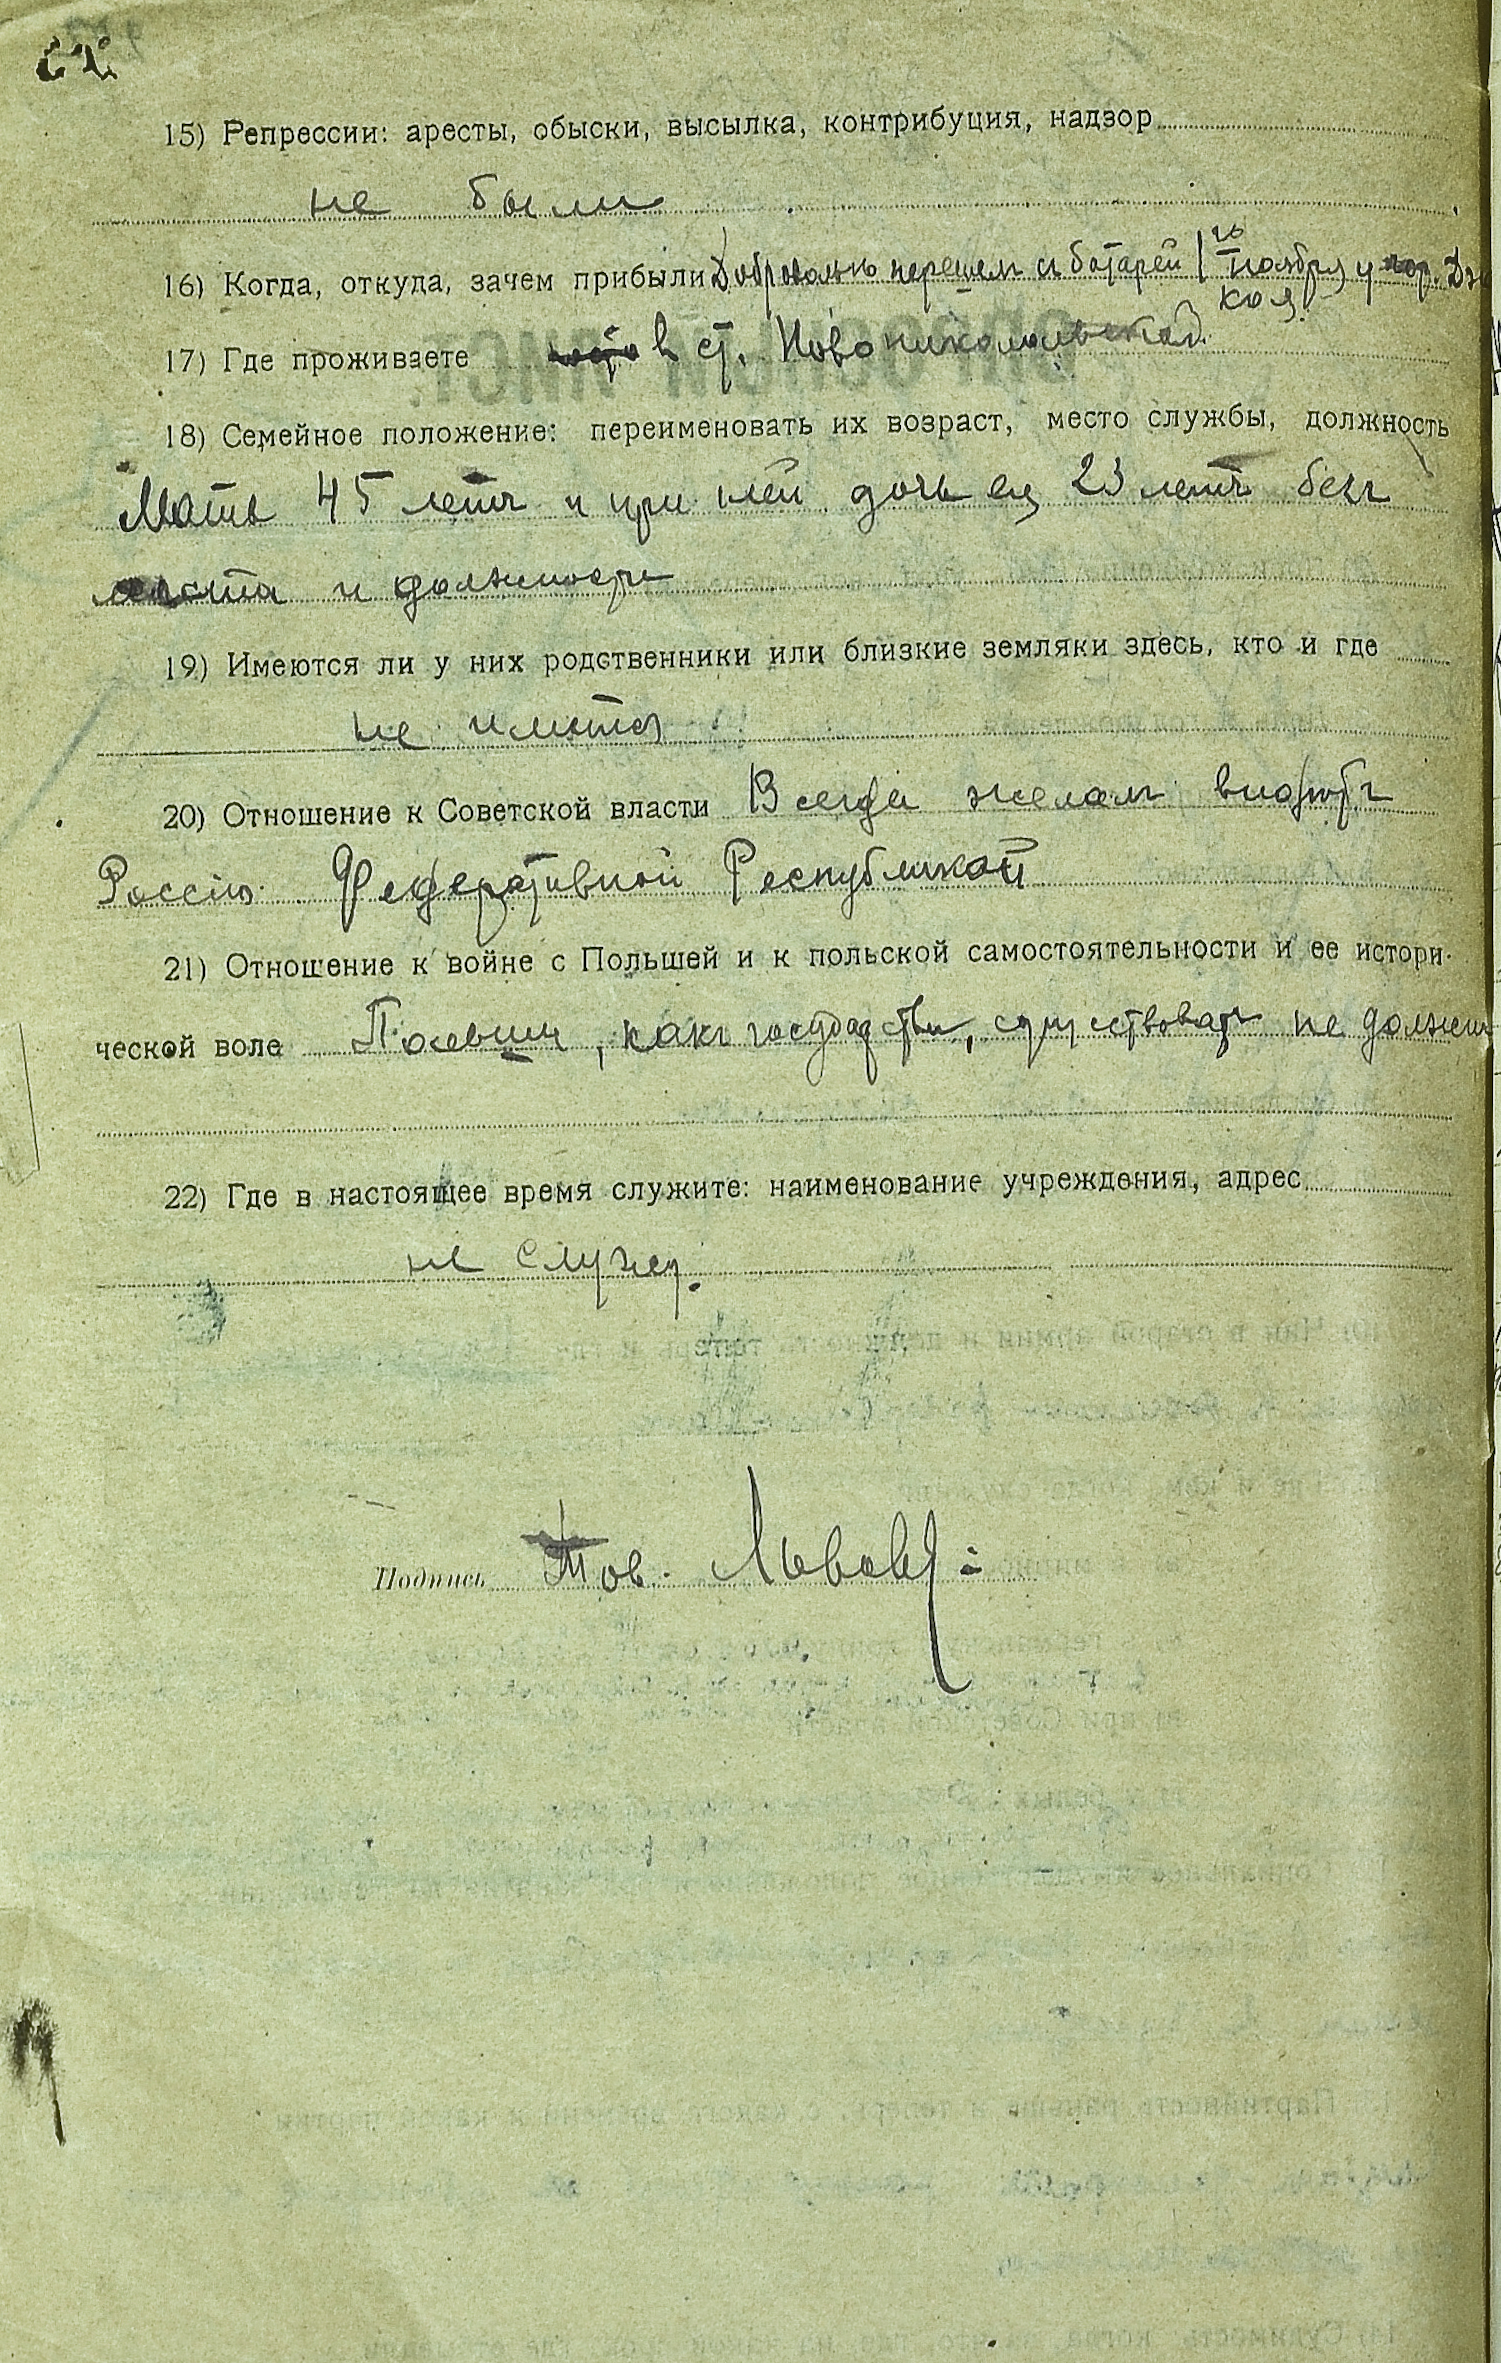 15) Репрессии: аресты, обыски, высылка, контрибуция, надзор
не были
16) Когда, откуда, зачем прибыли Добровольно перешел с батареи 1го ноября у гор. Джа
коя
17) Где проживаете в ст. Новоникольской
18) Семейное положение: переименовать их возраст, место службы, должность
Мать 45 летъ и при ней дочь ея 23 летъ безъ
места и должности
19) Имеются ли у них родственники или близкие земляки здесь, кто и где
не имется
20) Отношение к Советской власти Всегда желалъ видеть
Россию Федеративной Республикой
21) Отношение к войне с Польшей и к польской самостоятельности и ее истори-
ческой воле Польши, какъ государства, существовать не должны
22) Где в настоящее время служите: наименование учреждения, адрес
не служу.
Подпись Тов. Львов